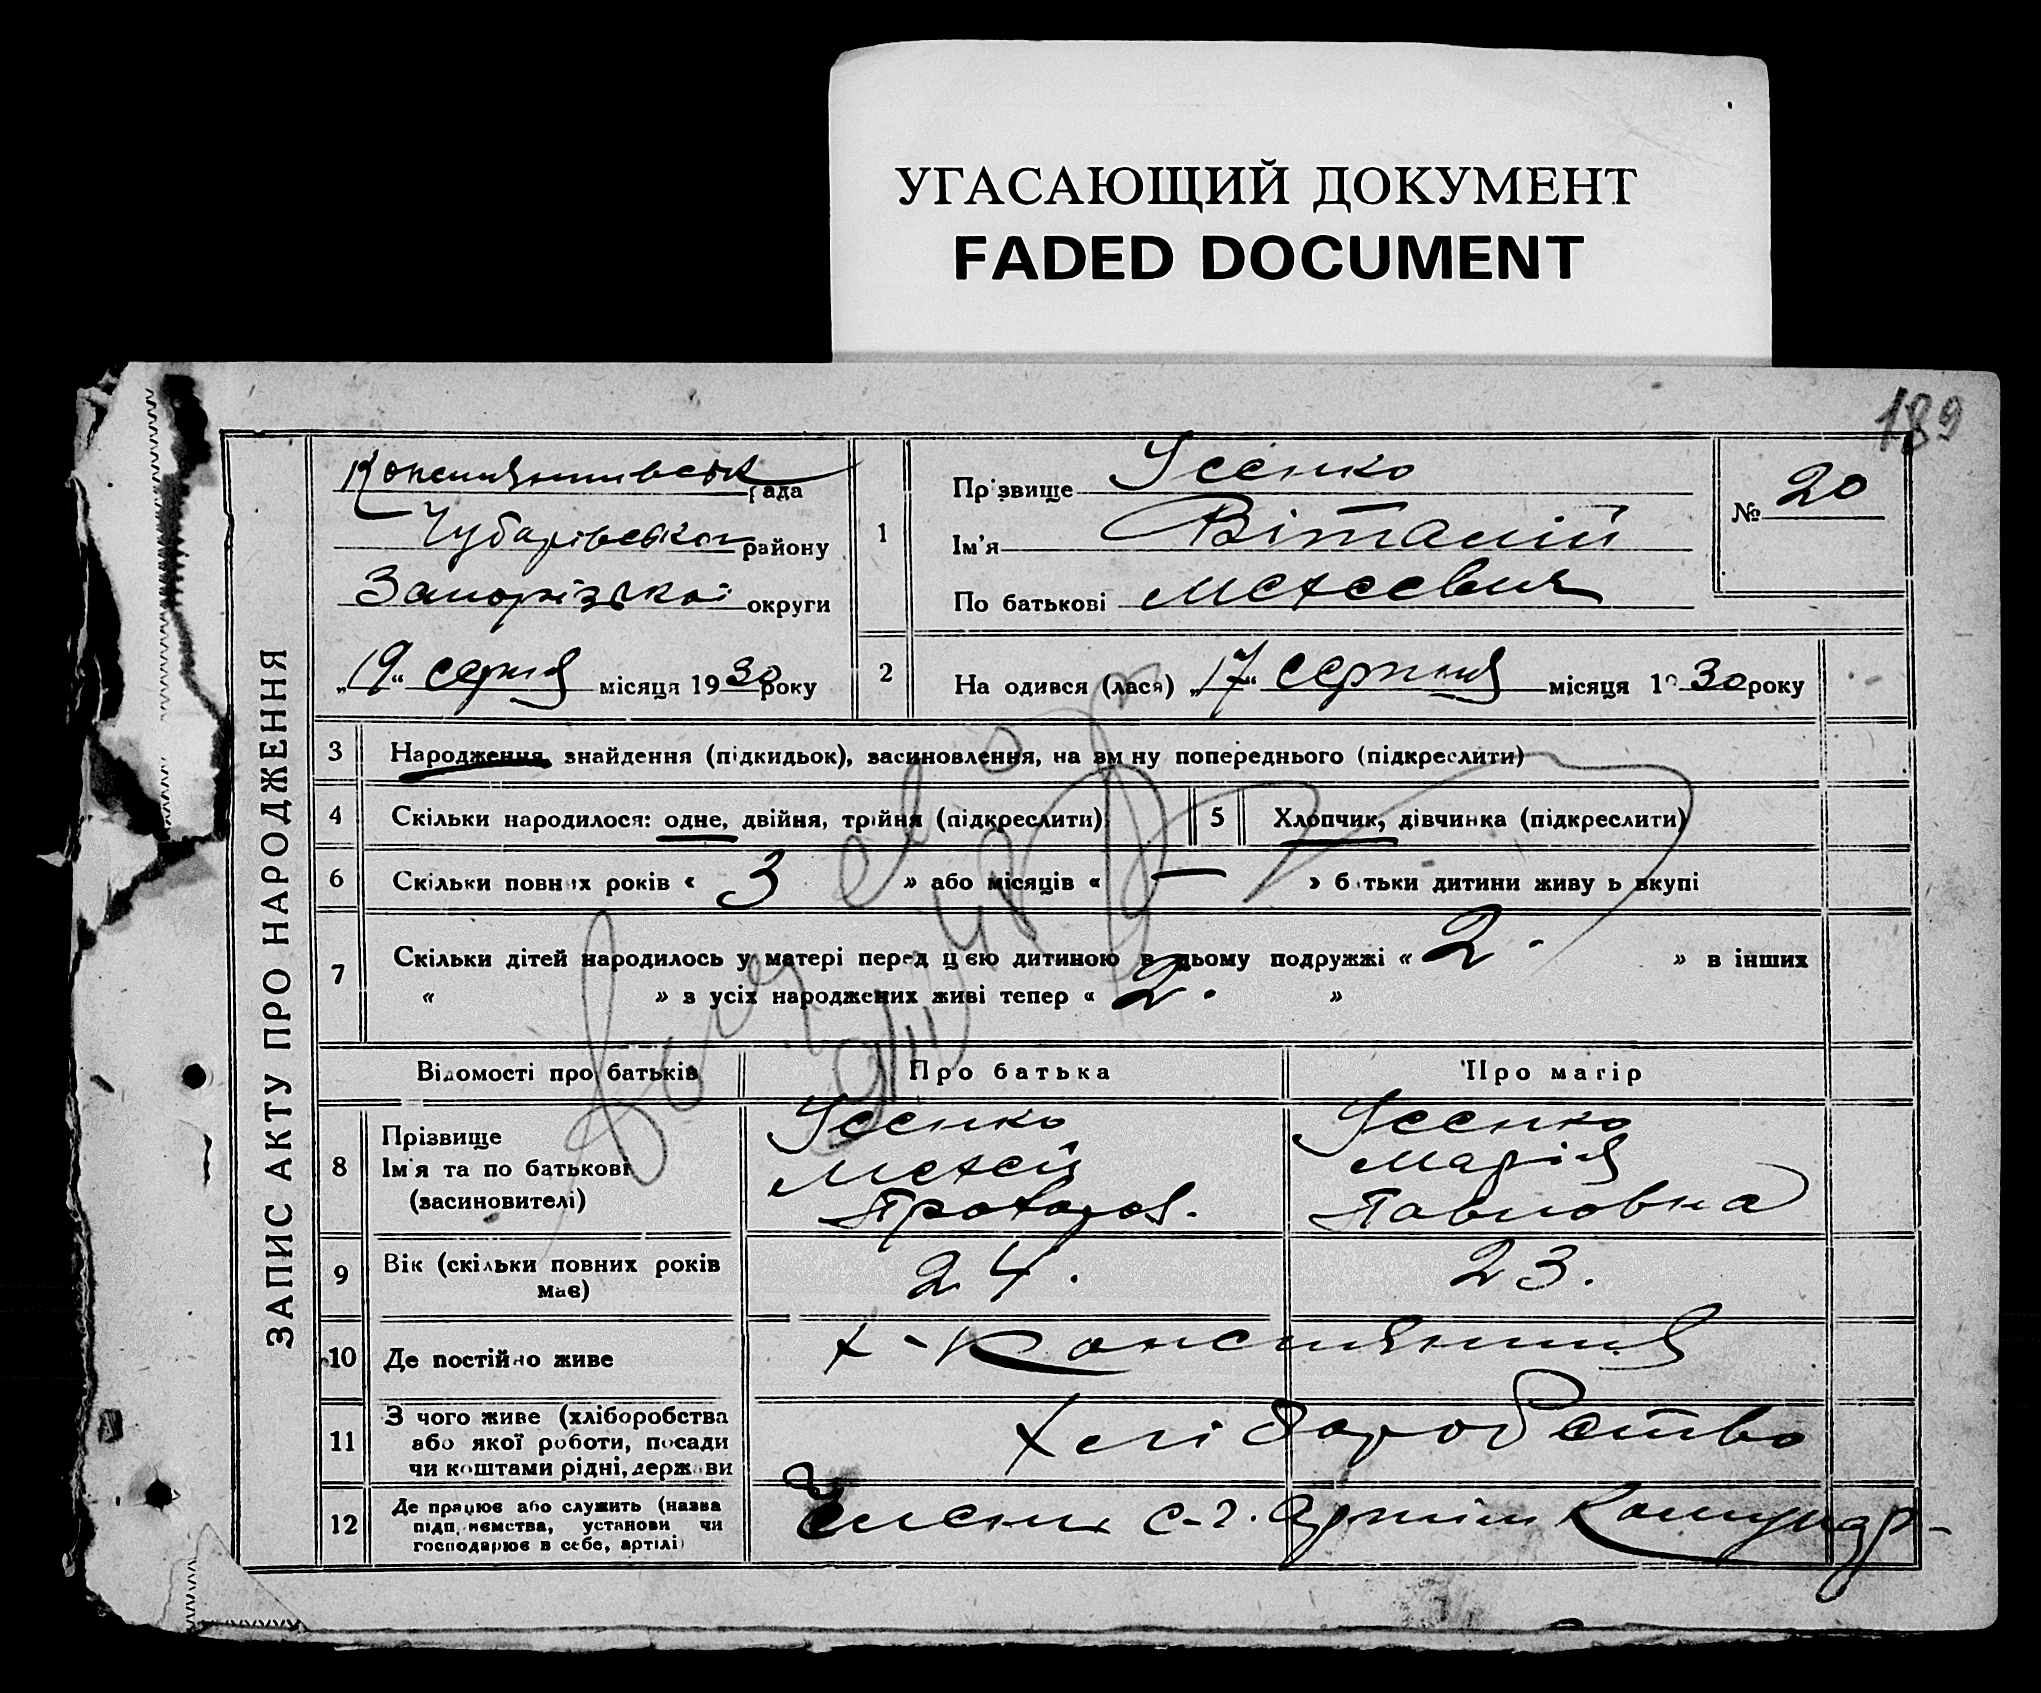 УГАСАЮЩИЙ ДОКУМЕНТ
FADED DOCUMENT
189
ЗАПИС АКТУ ПРО НАРОДЖЕННЯ
Констянтивськ рада
Чубарівського району
Запорізької округи
„19“ серпня місяця 1930 року
1
Прізвище Усенко
Ім'я Віталій
По батькові
№ 20
2
На одився (лася) „17“ серпня місяця 1930 року
3 Народження, знайдення (підкидьок), засиновлення, на вм ну попереднього (підкреслити)
4 Скільки народилося: одне, двійня, трійня (підкреслити)
5 Хлопчик, дівчинка (підкреслити)
6 Скільки повних років « 3 » або місяців « — » б тьки дитини живу ь вкупі
7 Скільки дітей народилось у матері перед цією дитиною в цьому подружжі « 2. » в інших
« » з усіх народжених живі тепер « 2. »
Відомості про батьків Про батька Про матір
8 Прізвище
Ім'я та по батькові
(засиновителі)
Усенко
Усенко
Марія
Павловна
9 Вік (скільки повних років
має)
24.
23.
10 Де постійно живе
х-Констянтия
11 З чого живе (хліборобства
або якої роботи, посади
чи коштами рідні, держави
Хліборобство
12 Де працює або служить (назва
підп, иємства, установи чи
господарює в себе, артілі)
Член с-г. Артіли Комунар-